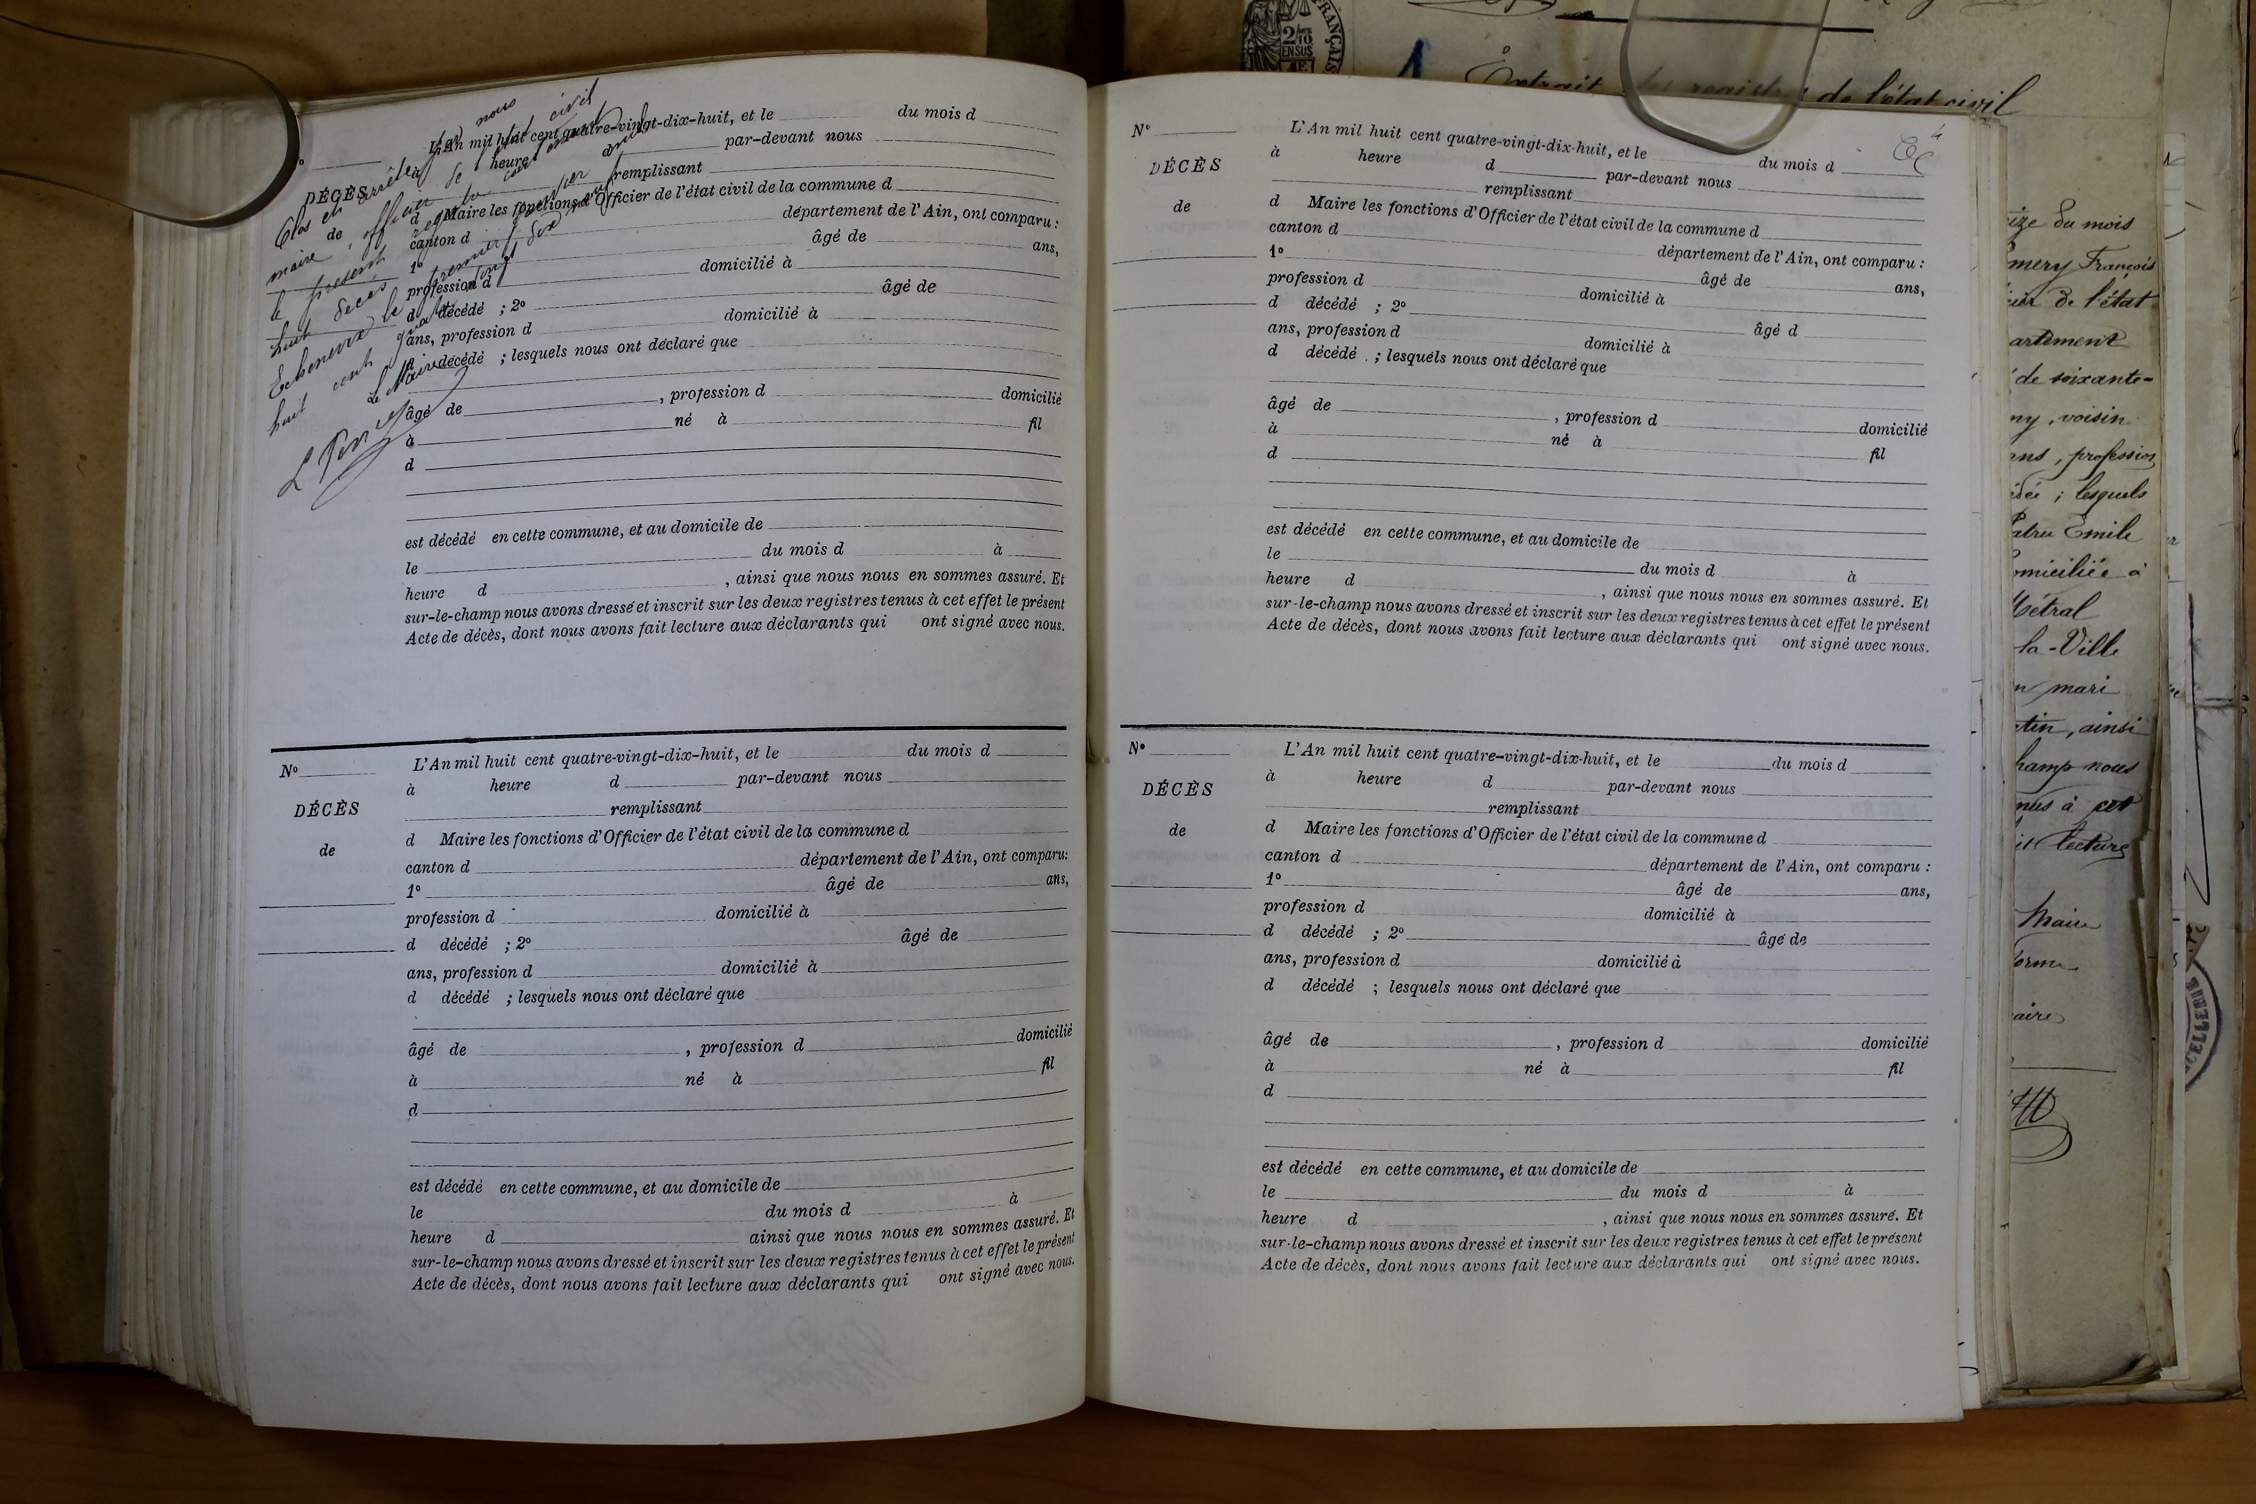 Clos et arrêté par nous
maire, officier de l'état civil
le présent registre
huit décès
Echenevex le premier janvier
huit cent quatre vingt dix neuf
Le Maire
DÉCÈS
de
L'An mil huit cent quatre-vingt-dix-huit, et le du mois d
à heure d par-devant nous
remplissant
d Maire les fonctions d'Officier de l'état civil de la commune d
canton d département de l'Ain, ont comparu :
1º âgé de ans,
profession d domicilié à
d décédé ; 2º âgé de
ans, profession d domicilié à
d décédé ; lesquels nous ont déclaré que
âgé de , profession d domicilié
à né à fil
d
est décédé en cette commune, et au domicile de
le du mois d à
heure d , ainsi que nous nous en sommes assuré. Et
sur-le-champ nous avons dressé et inscrit sur les deux registres tenus à cet effet le présent
Acte de décès, dont nous avons fait lecture aux déclarants qui ont signé avec nous.
Nº
DÉCÈS
de
L'An mil huit cent quatre-vingt-dix-huit, et le du mois d
à heure d par-devant nous
remplissant
d Maire les fonctions d'Officier de l'état civil de la commune d
canton d département de l'Ain, ont comparu:
1º âgé de ans,
profession d domicilié à
d décédé ; 2º âgé de
ans, profession d domicilié à
d décédé ; lesquels nous ont déclaré que
âgé de , profession d domicilié
à né à fil
d
est décédé en cette commune, et au domicile de
le du mois d à
heure d ainsi que nous nous en sommes assuré. Et
sur-le-champ nous avons dressé et inscrit sur les deux registres tenus à cet effet le présent
Acte de décès, dont nous avons fait lecture aux déclarants qui ont signé avec nous.
4
Nº
DÉCÈS
de
L'An mil huit cent quatre-vingt-dix-huit, et le du mois d
à heure d par-devant nous
remplissant
d Maire les fonctions d'Officier de l'état civil de la commune d
canton d département de l'Ain, ont comparu :
1º âgé de ans,
profession d domicilié à
d décédé ; 2º âgé d
ans, profession d domicilié à
d décédé ; lesquels nous ont déclaré que
âgé de , profession d domicilié
à né à fil
d
est décédé en cette commune, et au domicile de
le du mois d à
heure d , ainsi que nous nous en sommes assuré. Et
sur-le-champ nous avons dressé et inscrit sur les deux registres tenus à cet effet le présent
Acte de décès, dont nous avons fait lecture aux déclarants qui ont signé avec nous.
Nº
DÉCÈS
de
L'An mil huit cent quatre-vingt-dix-huit, et le du mois d
à heure d par-devant nous
remplissant
d Maire les fonctions d'Officier de l'état civil de la commune d
canton d département de l'Ain, ont comparu :
1º âgé de ans,
profession d domicilié à
d décédé ; 2º âgé de
ans, profession d domicilié à
d décédé ; lesquels nous ont déclaré que
âgé de , profession d domicilié
à né à fil
d
est décédé en cette commune, et au domicile de
le du mois d à
heure d , ainsi que nous nous en sommes assuré. Et
sur-le-champ nous avons dressé et inscrit sur les deux registres tenus à cet effet le présent
Acte de décès, dont nous avons fait lecture aux déclarants qui ont signé avec nous.
FRANÇAIS
2/10
EN SUS
Extrait des registres de l'état civil
du mois
François
de l'état
de soixante-
voisin
profession
lesquels
Emile
à
Métral
la-Ville
mari
ainsi
nous
à cet
lecture
Maire